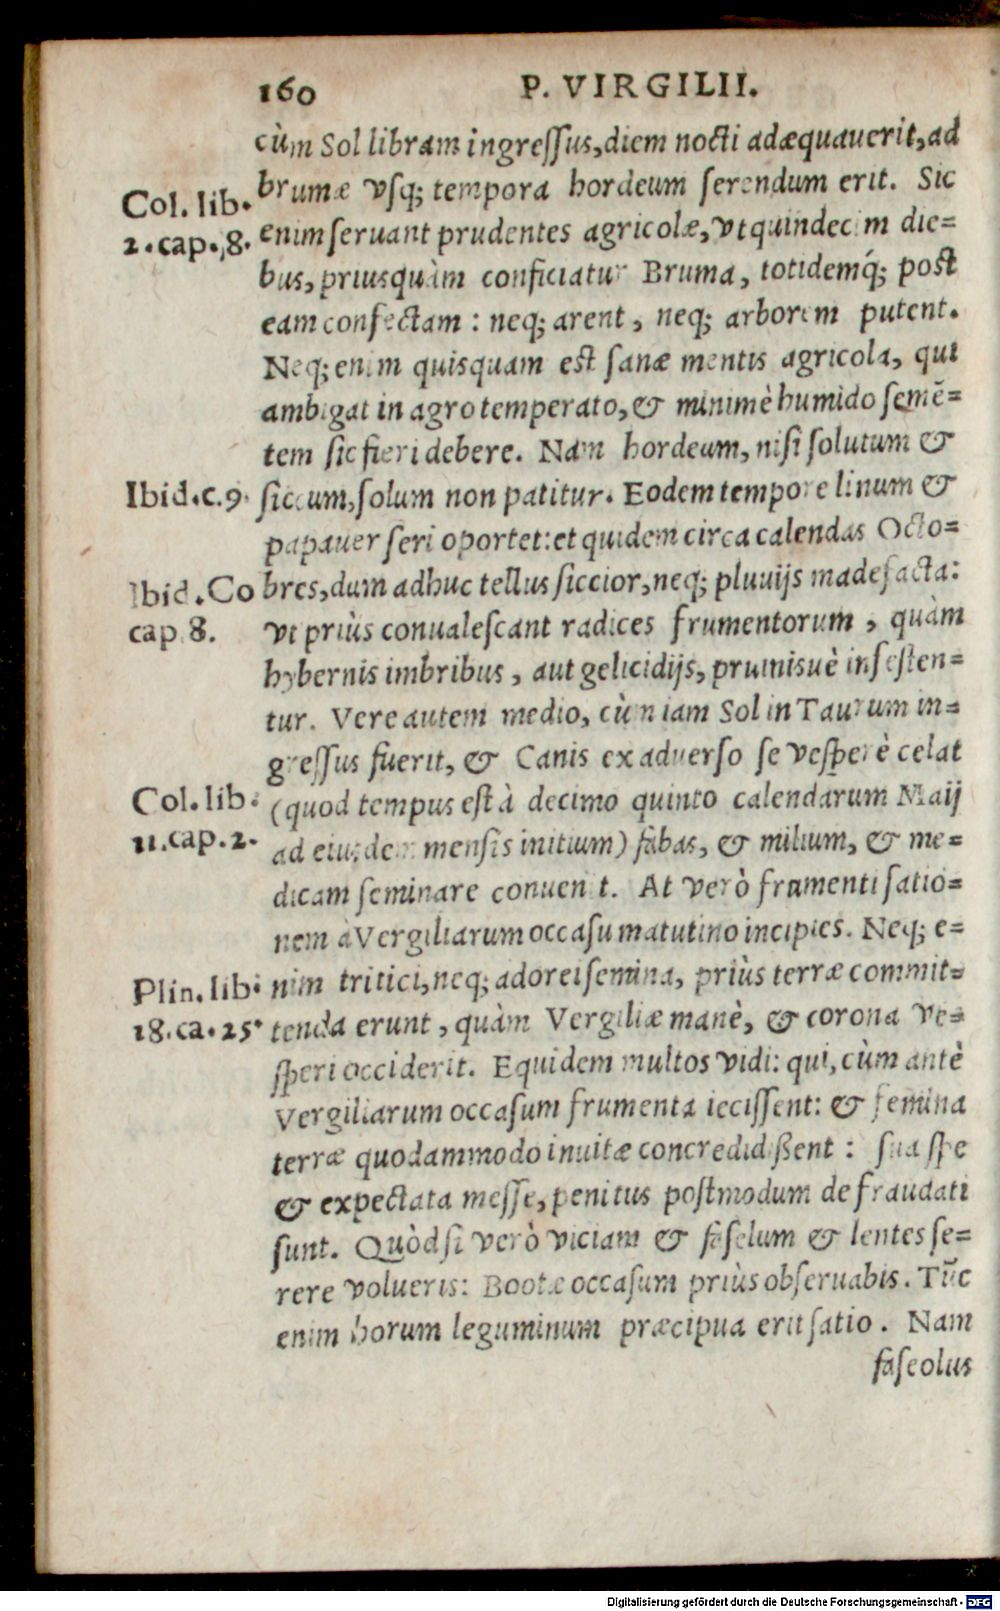 160 P. VIRGILII.
cùm Sol libram ingressus, diem nocti adæquauerit, ad
brumæ vsq; tempora hordeum serendum erit. Sic
Col. lib.
2. cap. 8.
enim seruant prudentes agricolæ, vt quindecim die-
bus, priusquàm conficiatur Bruma, totidemq́; post
eam confectam : neq; arent, neq; arborem putent.
Neq; enim quisquam est sanæ mentis agricola, qui
ambigat in agro temperato, & minimè humido semē-
tem sic fieri debere. Nam hordeum, nisi solutum &
Ibid. c. 9.
siccum, solum non patitur. Eodem tempore linum &
papauer seri oportet: et quidem circa calendas Octo-
Ibid. Co
cap 8.
bres, dum adhuc tellus siccior, neq; pluuijs madefacta:
vt priùs conualescant radices frumentorum, quàm
hybernis imbribus, aut gelicidijs, pruinisuè infesten-
tur. Vere autem medio, cùm iam Sol in Taurum in-
gressus fuerit, & Canis ex aduerso se vesperè celat
Col. lib.
11. cap. 2.
(quod tempus est à decimo quinto calendarum Maij
ad eiusdem mensis initium) fabas, & milium, & me-
dicam seminare conuenit. At verò frumenti satio-
nem à Vergiliarum occasu matutino incipies. Neq; e-
Plin. lib.
18. ca. 25.
nim tritici, neq; adorei semina, priùs terræ commit-
tenda erunt, quàm Vergiliæ manè, & corona ve-
speri occiderit. Equidem multos vidi: qui, cùm antè
Vergiliarum occasum frumenta iecissent: & femina
terræ quodammodo inuitæ concredidißent : sua spe
& expectata messe, penitus postmodum defraudati
sunt. Quòd si verò viciam & faselum & lentes se-
rere volueris: Bootæ occasum priùs obseruabis. Tūc
enim horum leguminum præcipua erit satio. Nam
faseolus
Digitalisierung gefördert durch die Deutsche Forschungsgemeinschaft - DFG